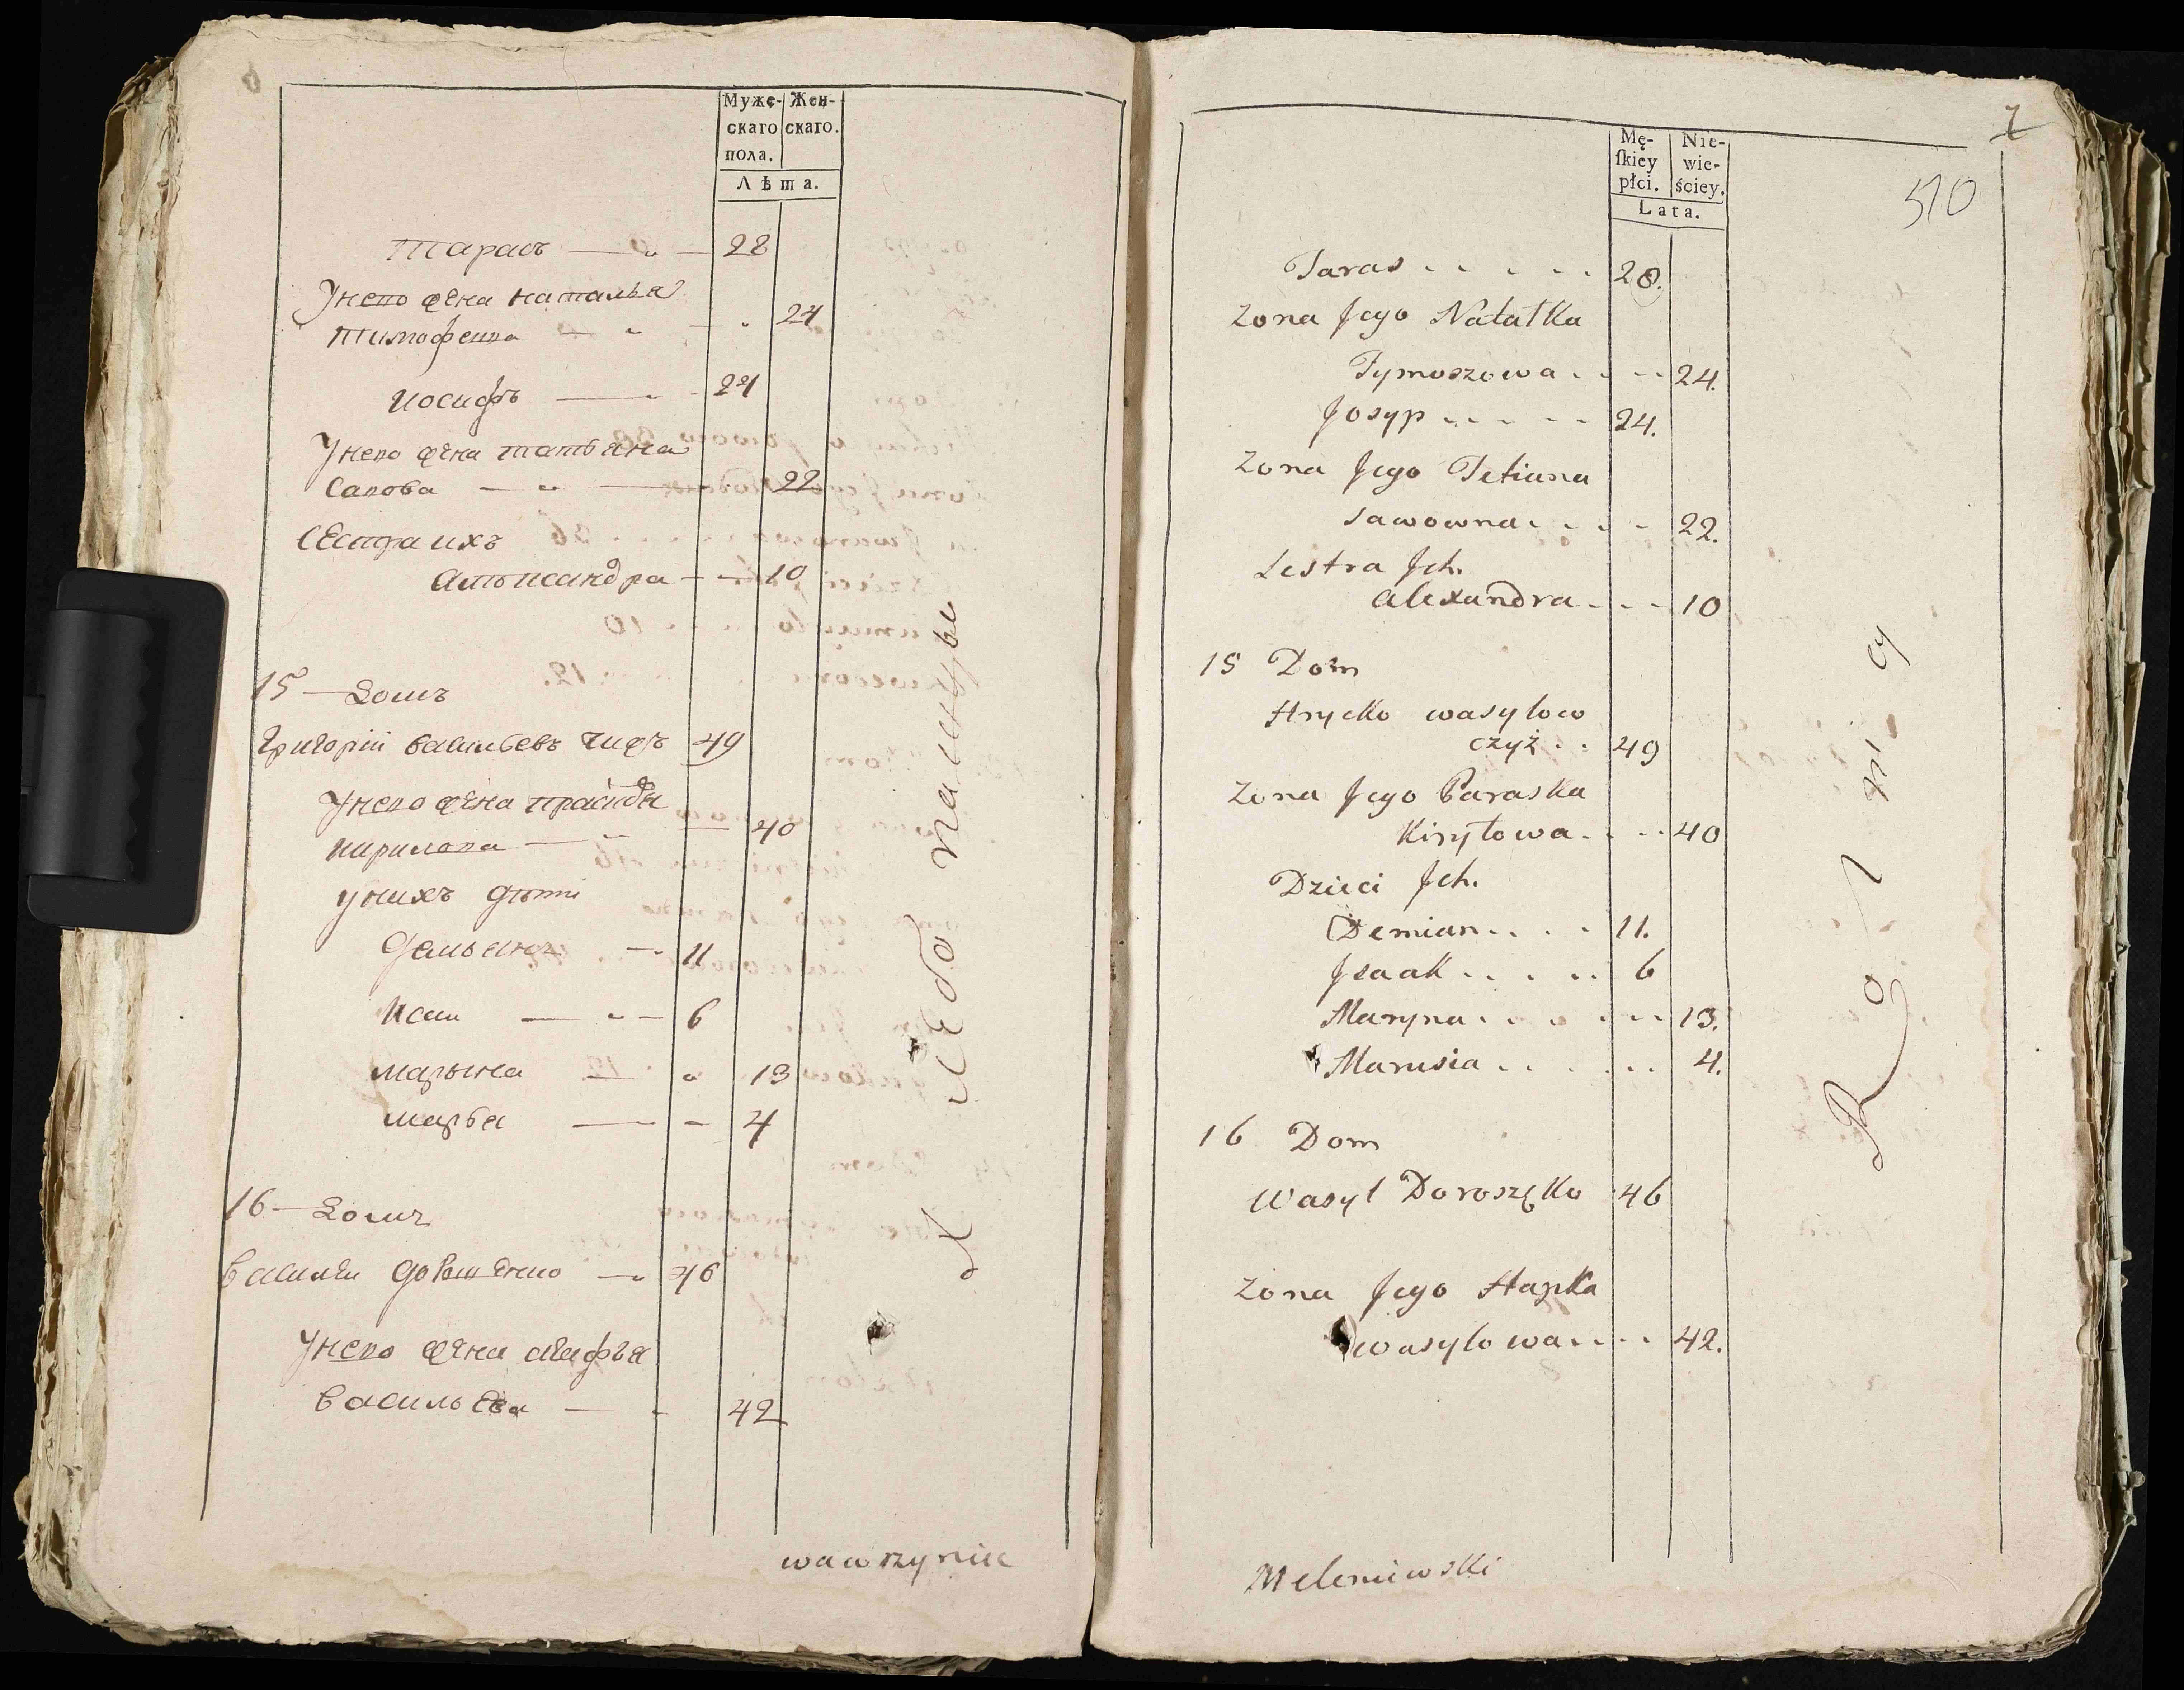 Муже- Жен-
скаго скаго.
пола.
Лѣта.
Тарасъ 28
У него жена Наталья
Тимофеива 24
Иосифъ 24
У него жена Татьяна
Савова 22
Сестра ихъ
Александра 10
15 Домъ
Григорій Васильевъ Чижъ 49
У него жена
Кирилова 40
У нихъ дѣти
Демьянъ 11
Исаи 6
Марына 13
Марья 4
16 Домъ
Василеи Дорошенко 46
У него жена Агафья
Васильева 42
Хлебопашцы
wawrzynie
7
510
Mę- Nie-
ſkiey wie-
płci. ściey.
Lata.
Taras 28.
Zona Jego Natałka
Tymoszowa 24.
Josyp 24.
Zona Jego Tetiana
Sawowna 22.
Sestra Jch.
Alexandra 10
15 Dom
Hrycko Wasylow
Czyż 49
Zona Jego Paraska
Kiryłowa 40
Dzieci Jch.
Demian 11.
Jsaak 6
Maryna 13.
Marusia 4.
16 Dom
Wasyl Doroszęko 46
Zona Jego Hapka
Wasylowa 42.
Rolnicy
Meleniewski